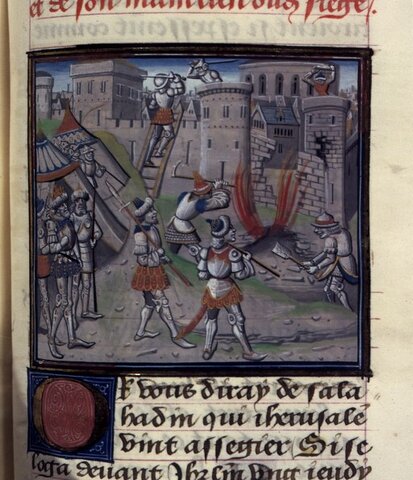 et de son maintien ou siege.
Or vous diray de sala
hadin qui iherusalē
vint assegier Si se
loga deuant Jhrlm vng ieudy